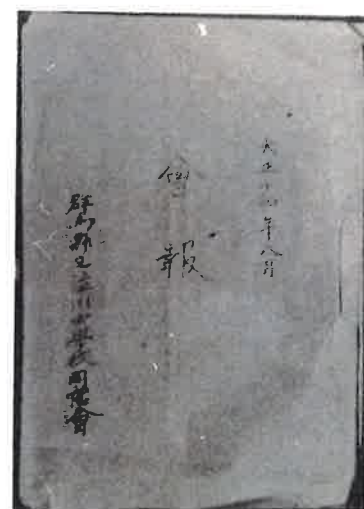 大正十四年八月
會報
群馬縣立渋川中學校同窓會